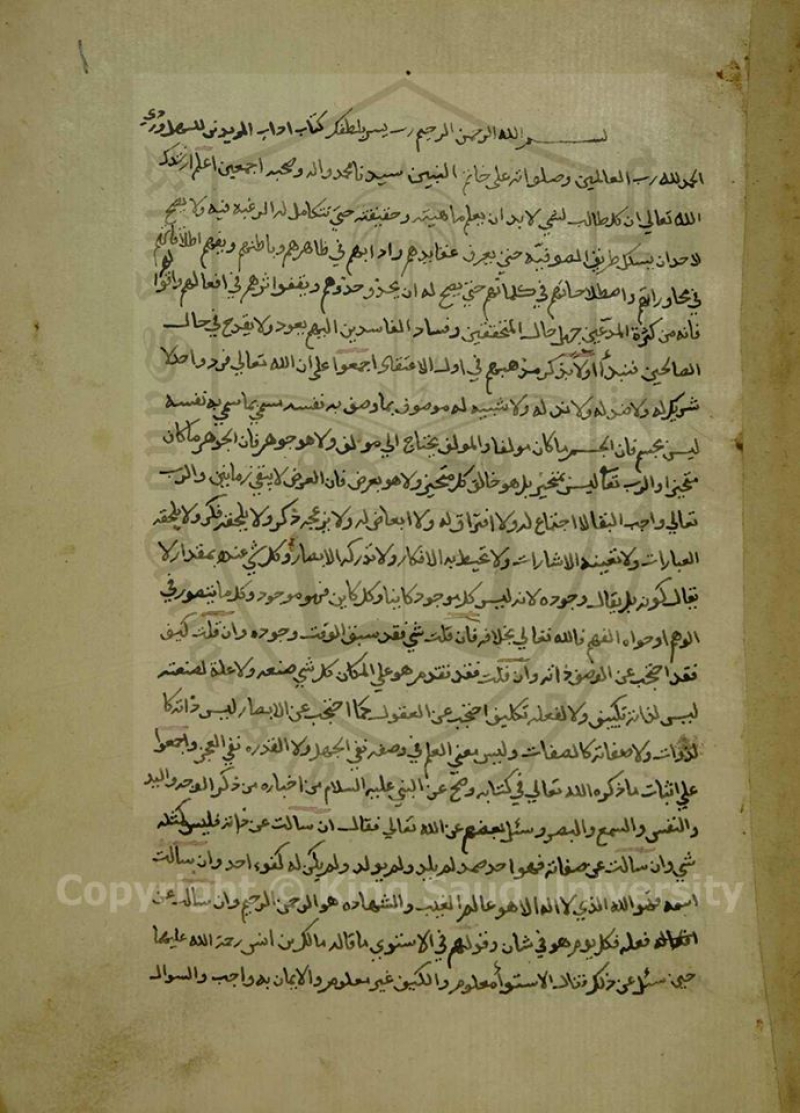 بسم الله الرحمن الرحيم رب يسر بلطفك كتاب اداب المريدين للسهروردي
الحمد لله رب العالمين وصلواته على خاتم النبيين سيدنا محمد واله وصحبه اجمعين اعلم ارشدك
الله تعالى ان كل طالب لشي لابد ان يعلم ماهيته وحقيقته حتى تتكامل له الرغبه فيه ولا يصح
لاحد ان يسلك طريق الصوفيه حتى يعرف عقايدهم وادابهم في ظاهرهم وباطنهم ويفهم اطلاقاتهم
في محاوراتهم واصطلاحاتهم في كلماتهم حتى يصح له ان يحذو حذوهم ويقفوا اثرهم في افعالهم
فانه من كثرة المدعين جهل حال المحققين وفساد الفاسدين اليهم يعود ولا يقدح في حال
الصالحين فنبدأ اولا بذكر مذهبهم في الاعتقاد اجمعوا على ان الله تعالى فرد واحد لا
شريك له ولا ضد له ولا ند له ولا شبيه له موصوف بما وصف به نفسه مسمى بما سمى به نفسه
ليس بجسم فان الجسم ما كان مولفا والمولف يحتاج الى مولف ولا هو جوهر فان الجوهر ما كان
متحيزا والرب تعالى ليس بمتحيز بل هو خالق كل متحيز ولا هو بعرض فان العرض لا يبقى زمانين والرب
تعالى واجب البقا لا اجتماع له ولا افتراق له ولا ابعاض له ولا يزعجه ذكر ولا يلحقه فكر ولا تلحقه
العبارات ولا تعينه الاشارات ولا تحيط به الافكار ولا تدركه الابصار وكل شي عنده بمقدار لا
يقال كونه بل يقال وجوده لانه ليس كل موجود كاينا وكل كاين فهو موجود وكل ما يتصور في
الوهم او حواه الفهم فالله تعالى بخلافه فان قلت متى فقد سبق الوقت وجوده وان قلت كيف
فقد احتجب عن الوصف ذاته وان قلت اين فقد تقدم هو على المكان كل شي صنعه ولا علة لصنعته
ليس لذاته تكييف ولا لفعله تكليف احتجب عن العقول كما احتجب عن الابصار ليس ذاته كا
لذوات ولا صفاته كالصفات وليس معنى العلم في وصفه نفي الجهل ولا القدره نفي العجز واجمعوا
على اثبات ما ذكره الله تعالى في كتابه وصح عن النبي عليه السلام من اخباره من ذكر الوجه واليد
والنفس والسمع والبصر وسئل بعضهم عن الله تعالى فقال ان سالت عن ذاته فليس كمثله
شي وان سالت عن صفاته فهو احد صمد لم يلد ولم يولد ولم يكن له كفوا احد وان سالت
اسمه فهو الله الذي لا اله الا هو عالم الغيب والشهاده هو الرحمن الرحيم وان سالت عن
فعله فكل يوم هو في شان وقولهم في الاستوى ما قاله مالك بن انس رحمة الله عليهما
حين سئل عن ذلك فقال الاستوا معلوم والكيف غير معلوم والايمان به واجب والسوال
Copyright © King Saud University